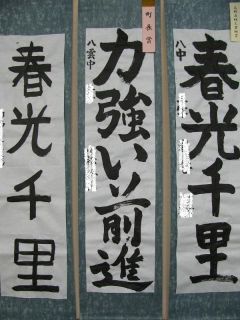 春光千里
八中
町長賞
力強い前進
八雲中
春光千里